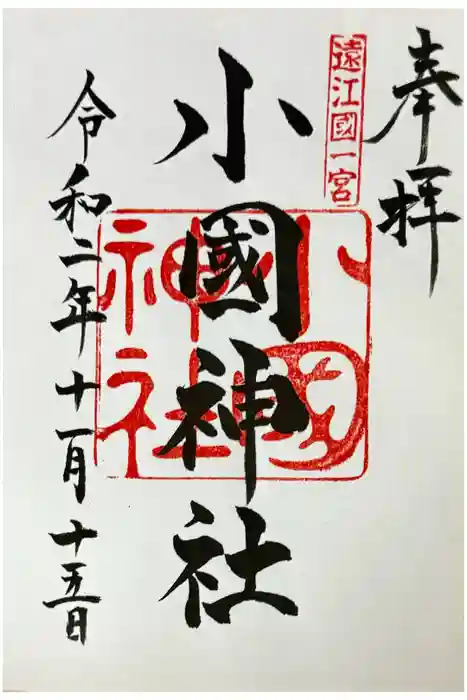 奉拝
遠江國一宮
小國神社
小國
神社
令和二年十一月十五日